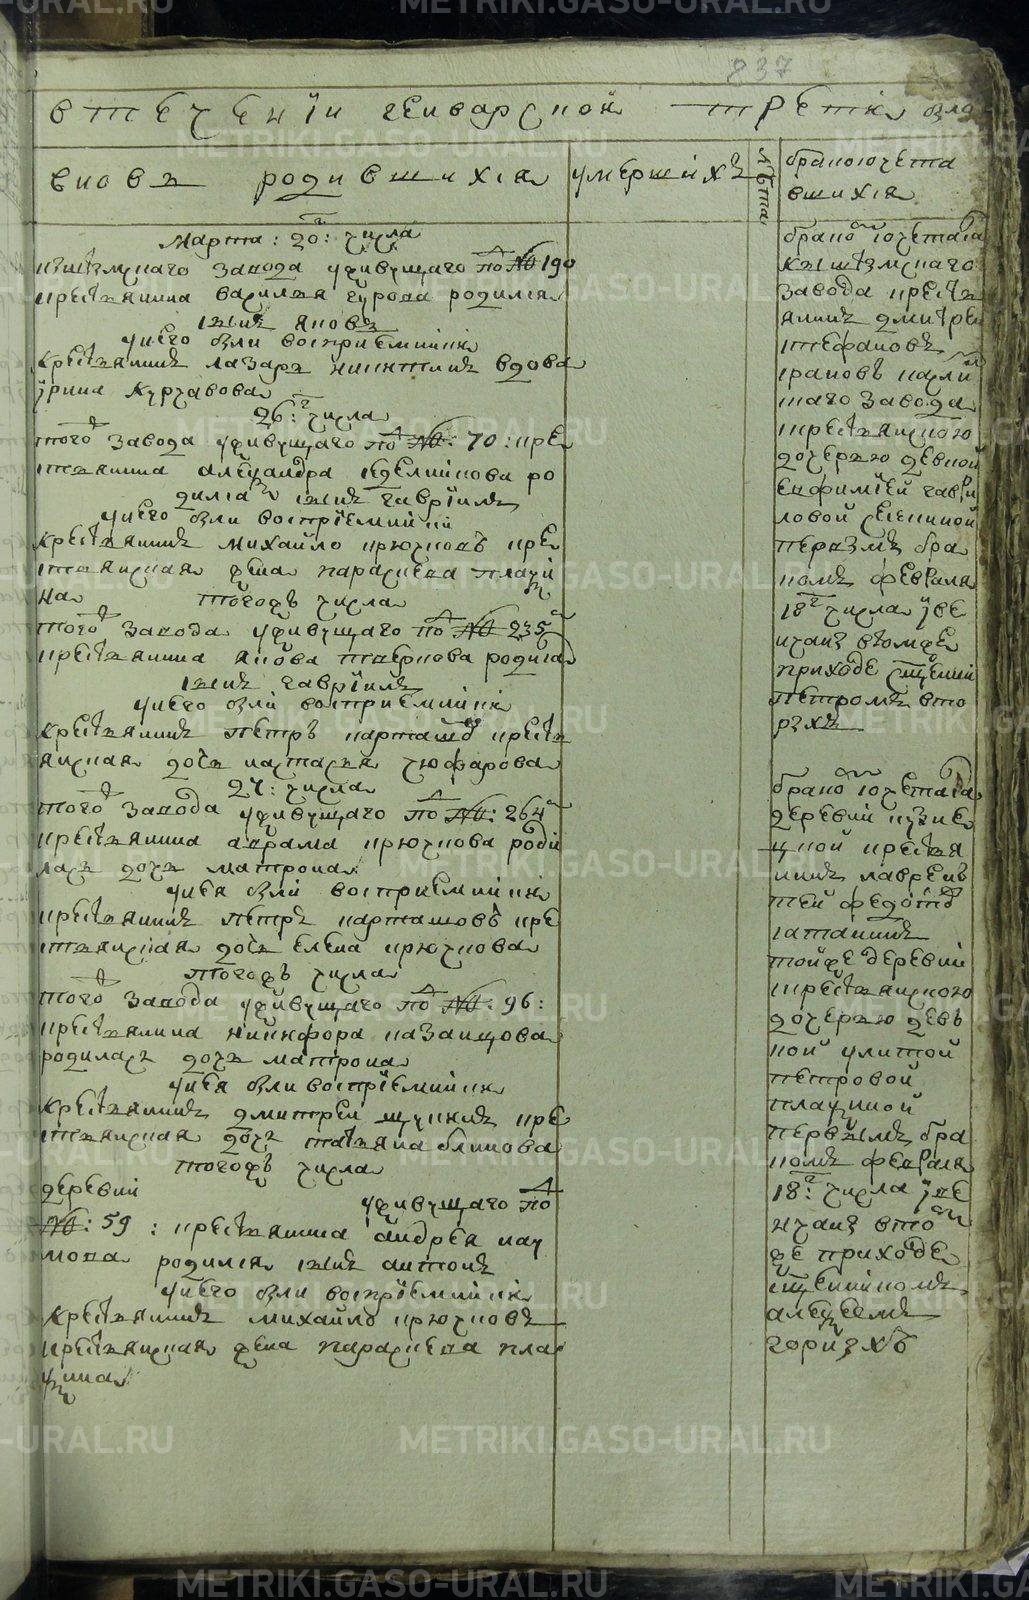 837
в течении генварской трети
вновь родившихся
умерших
лета
бракосочета
вшихся
Марта: 20: числа
кыштымскаго завода уживущаго по № 190
крестьянина василья гурова родился
сын яков
у него были восприемники
крестьянин лазарь никитин вдова
ирина курчавова
26: числа
того завода уживущаго по №: 70: кре
стьянина александра неделникова ро
дился сын гавриил
у него были восприемники
крестьянин михайло крюков кре
стьянская жена параскева
на тогож числа
того завода уживущаго по № 235
крестьянина якова родился
сын гавриил
у него были восприемники
крестьянин петр карташов кресть
янская дочь настасья
27: числа
того завода уживущаго по №: 264
крестьянина аврама крюкова роди
лась дочь матрона
у нея были восприемники
крестьянин петр карташов кре
стьянская дочь елена крюкова
тогож числа
того завода уживущаго по №: 96:
крестьянина никифора казанцова
родилась дочь матрона
у нея были восприемники
крестьянин дмитрей щукин кре
стьянская дочь татьяна блинова
тогож числа
деревни уживущаго по
№: 59: крестьянина андрея нау
мова родился сын антон
у него были восприемники
крестьянин михайло крюков
крестьянская жена параскева
браком сочетался
кыштымскаго
завода кресть
янин дмитрей
стефанов
каслин
скаго завода
крестьянскою
дочерью девкой
евфимией гаври
ловой
первым бра
ком февраля
18 числа
венчан втомже
приходе священни
петром вто
рых
браком сочетался
деревни кузне
цкой крестья
нин лаврен
тей федотов
сатанин
тойже деревни
крестьянскою
дочерью дев
кой улитой
петровой
первым бра
ком февраля
18: числа
нчан вто
же приходе
священником
алексеем